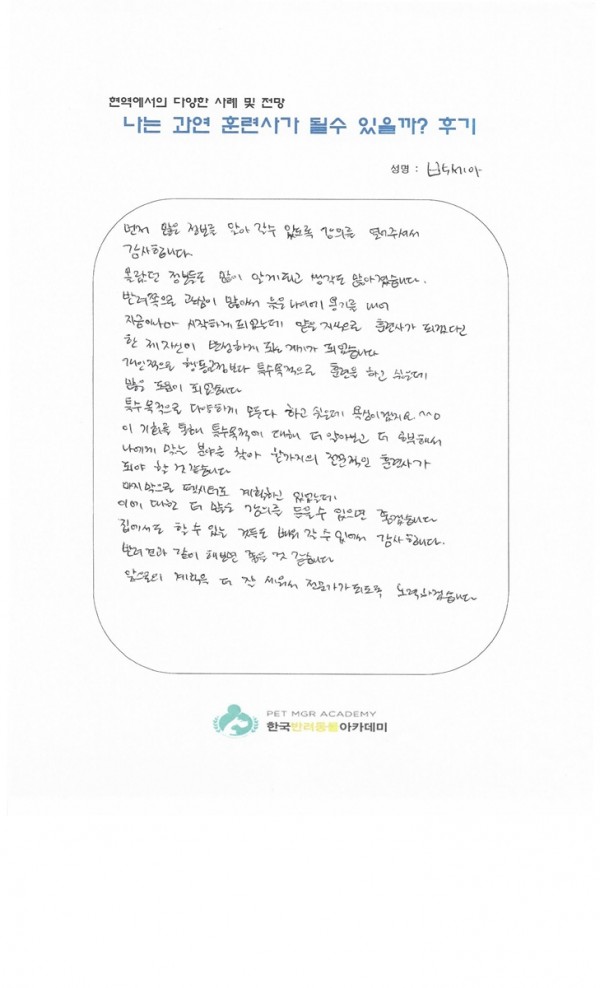 현역에서의 다양한 사례 및 전망
나는 과연 훈련사가 될수 있을까? 후기
성명 :
먼저 많은 정보를 알아 갈수 있도록 강의를 열어주셔서
감사합니다.
몰랐던 정보들도 많이 알게되고 생각도 많아졌습니다.
반려쪽으로 관심이 많아서 늦은 나이에 용기를 내어
지금이나마 시작하게 되었는데 훈련사가 되겠다던
한 제 자신이 반성하게 되는 계기가 되었습니다
개인적으로 행동교정보다 특수목적으로 훈련을 하고 싶은데
많은 도움이 되었습니다
특수목적으로 다양하게 모두다 하고 싶은데 욕심이겠지요. ^^
이 기회를 통해 특수목적에 대해 더 알아보고 더 공부해서
나에게 맞는 분야를 찾아 한가지의 전문적인 훈련사가
되야 할 것 같습니다
마지막으로 펫시터도 계획하긴 했었는데
이에 대한 더 많은 강의를 들을수 있으면 좋겠습니다
집에서도 할 수 있는 것들도 배워 갈 수 있어서 감사합니다.
반려견과 같이 해보면 좋을 것 같습니다
앞으로의 계획을 더 잘 세워서 전문가가 되도록 노력하겠습니다
PET MGR ACADEMY
한국반려동물아카데미